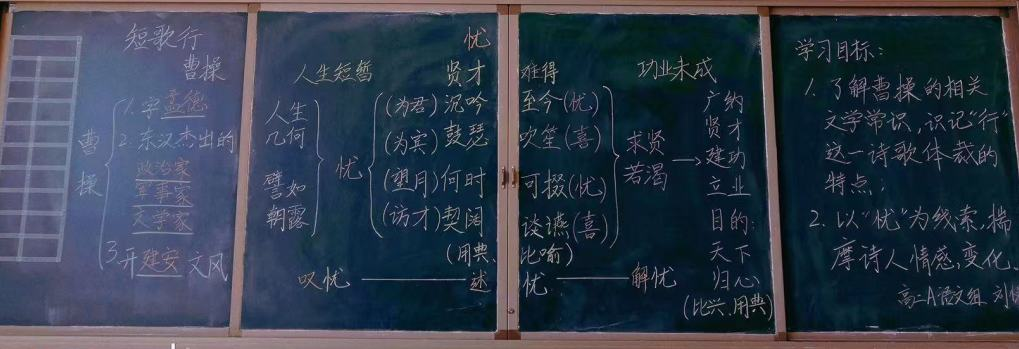 短歌行
曹操
曹操
1.字孟德
2.东汉杰出的
政治家
军事家
文学家
3.开建安文风
忧
人生短暂 贤才难得 功业未成
人生几何
譬如朝露
忧
(为君)沉吟至今(忧)
(为宾)鼓瑟吹笙(喜)
(望月)何时可掇(忧)
(访才)契阔谈讌(喜)
(用典、比喻)
求贤若渴
→
广纳
贤才
建功
立业
目的:
天下
归心
(比兴、用典)
叹忧——述忧——解忧
学习目标:
1.了解曹操的相关
文学常识,识记“行”
这一诗歌体裁的
特点;
2.以“忧”为线索,揣
摩诗人情感,变化.
高二A语文组 刘